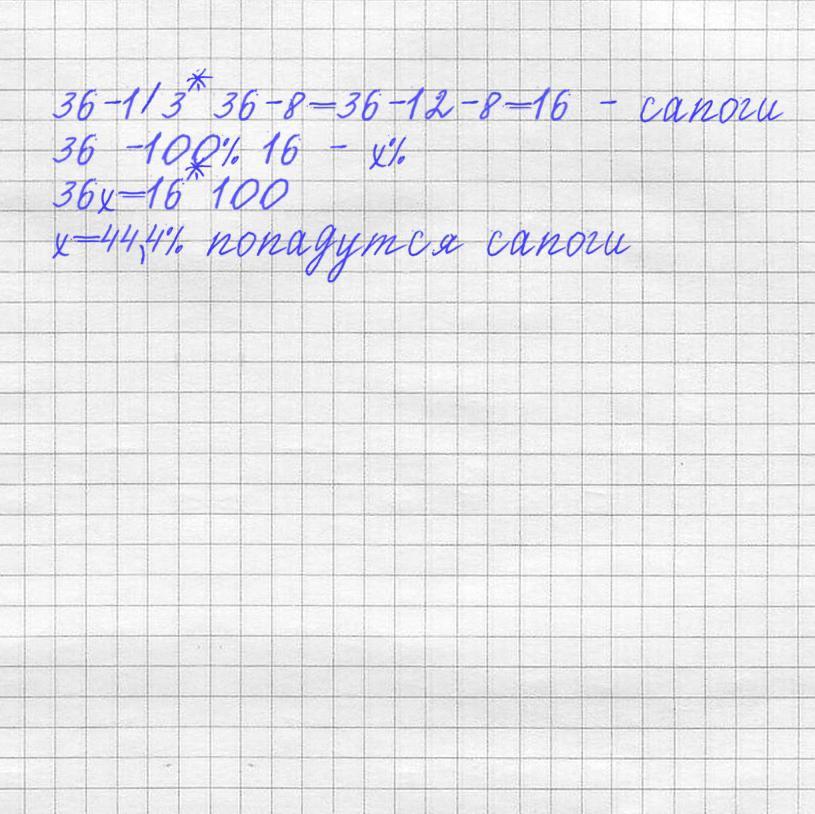 36-1/3* 36-8=36-12-8=16 - сапоги
36 -100% 16 - х%
36х=16* 100
х=44,4% попадутся сапоги